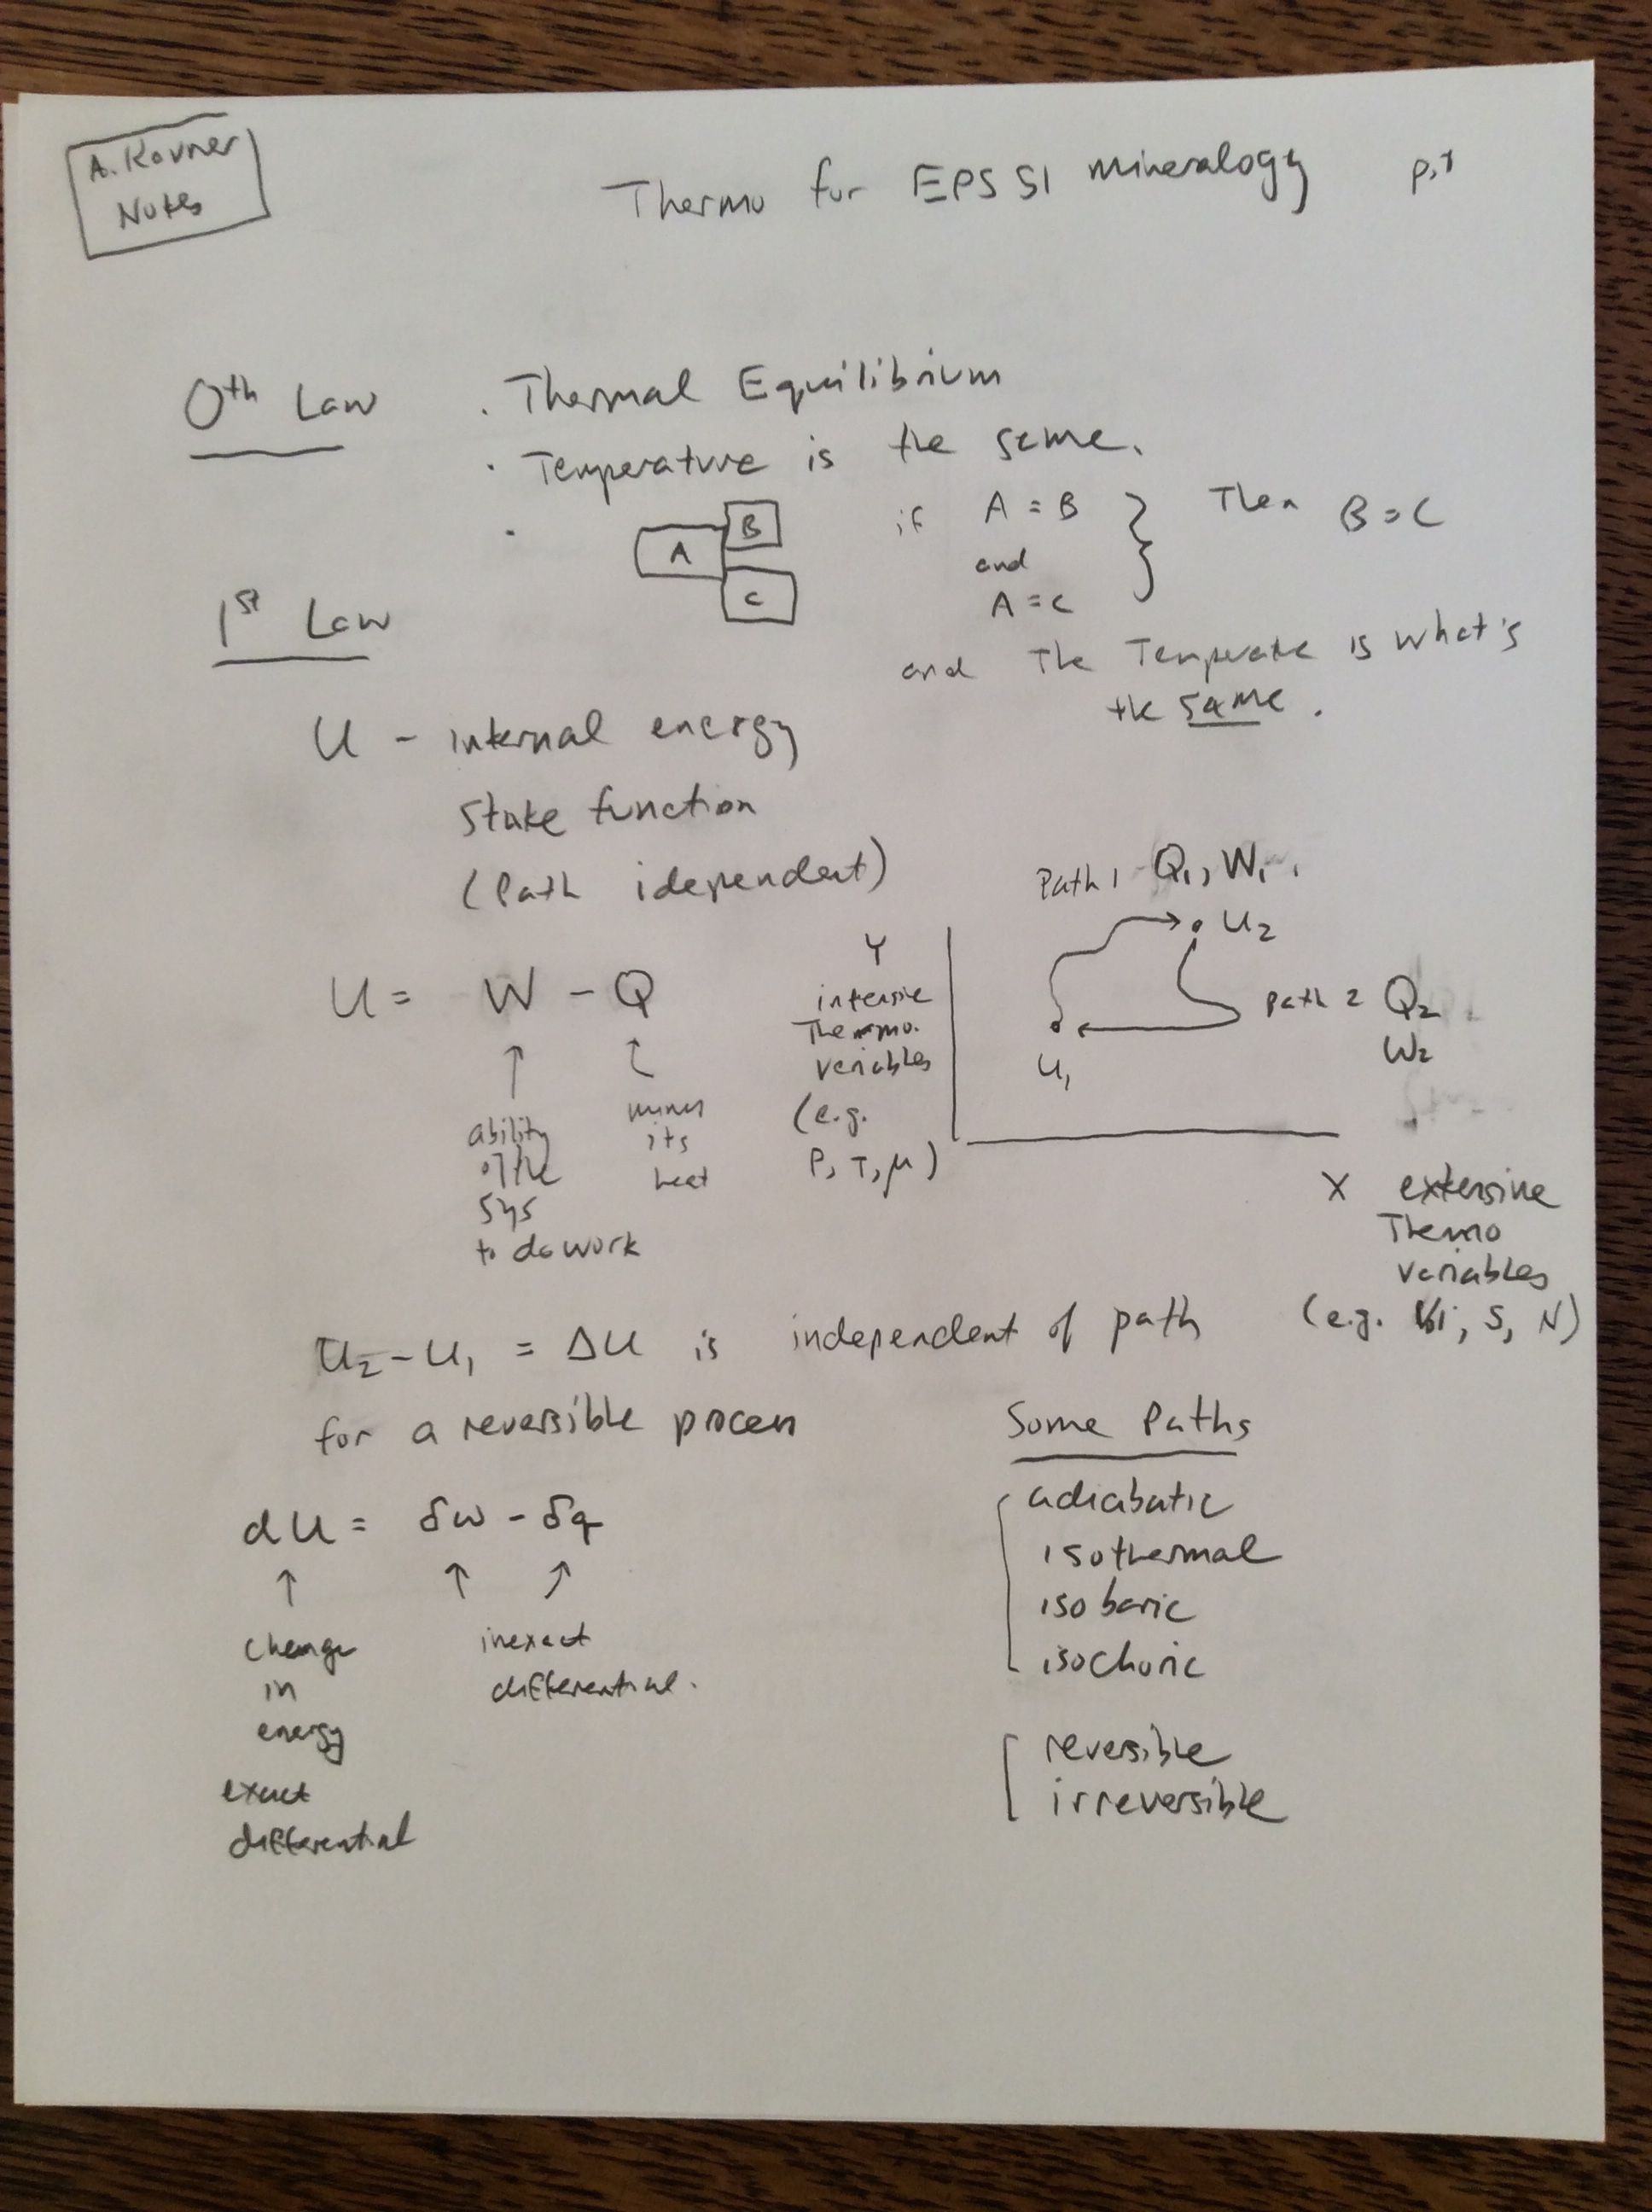 A. Kavner
Notes
Thermo for EPSS 51 mineralogy p.1
0th Law . Thermal Equilibrium
. Temperature is the same.
.
A
B
C
if A = B
and
A = C
} Then B = C
and The Temperate is what's
the same.
1st Law
U - internal energy
State function
(Path idependent)
U = W - Q
↑ ↑
ability
of the
sys
to do work
minus
its
heat
Y
intensive
Thermo.
variables
(e.g.
P, T, μ)
Path 1 Q1, W1
U2
Path 2 Q2
W2
U1
X extensive
Thermo
variables
(e.g. V, S, N)
U2 - U1 = ΔU is independent of path
for a reversible process
dU = δw - δq
↑ ↑ ↑
change
in
energy
exact
differential
inexact
differential.
Some Paths
adiabatic
isothermal
isobaric
isochoric
reversible
irreversible